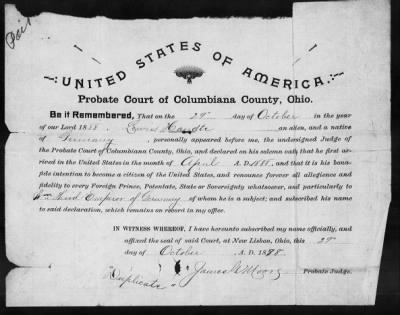 Paid
UNITED STATES OF AMERICA.
Probate Court of Columbiana County, Ohio.
Be it Remembered, That on the 29" day of October in the year
of our Lord 1888 an alien, and a native
of Germany, personally appeared before me, the undersigned Judge of
the Probate Court of Columbiana County, Ohio, and declared on his solemn oath that he first ar-
rived in the United States in the month of April A. D. 1888. and that it is his bona-
fide intention to become a citizen of the United States, and renounce forever all allegiance and
fidelity to every Foreign Prince, Potentate, State or Sovereignty whatsoever, and particularly to
Emperor of Germany of whom he is a subject; and subscribed his name
to said declaration, which remains on record in my office.
IN WITNESS WHEREOF, I have hereunto subscribed my name officially, and
affixed the seal of said Court, at New Lisbon, Ohio, this 29"
day of October A. D. 1888
James Moore Probate Judge.
Duplicate